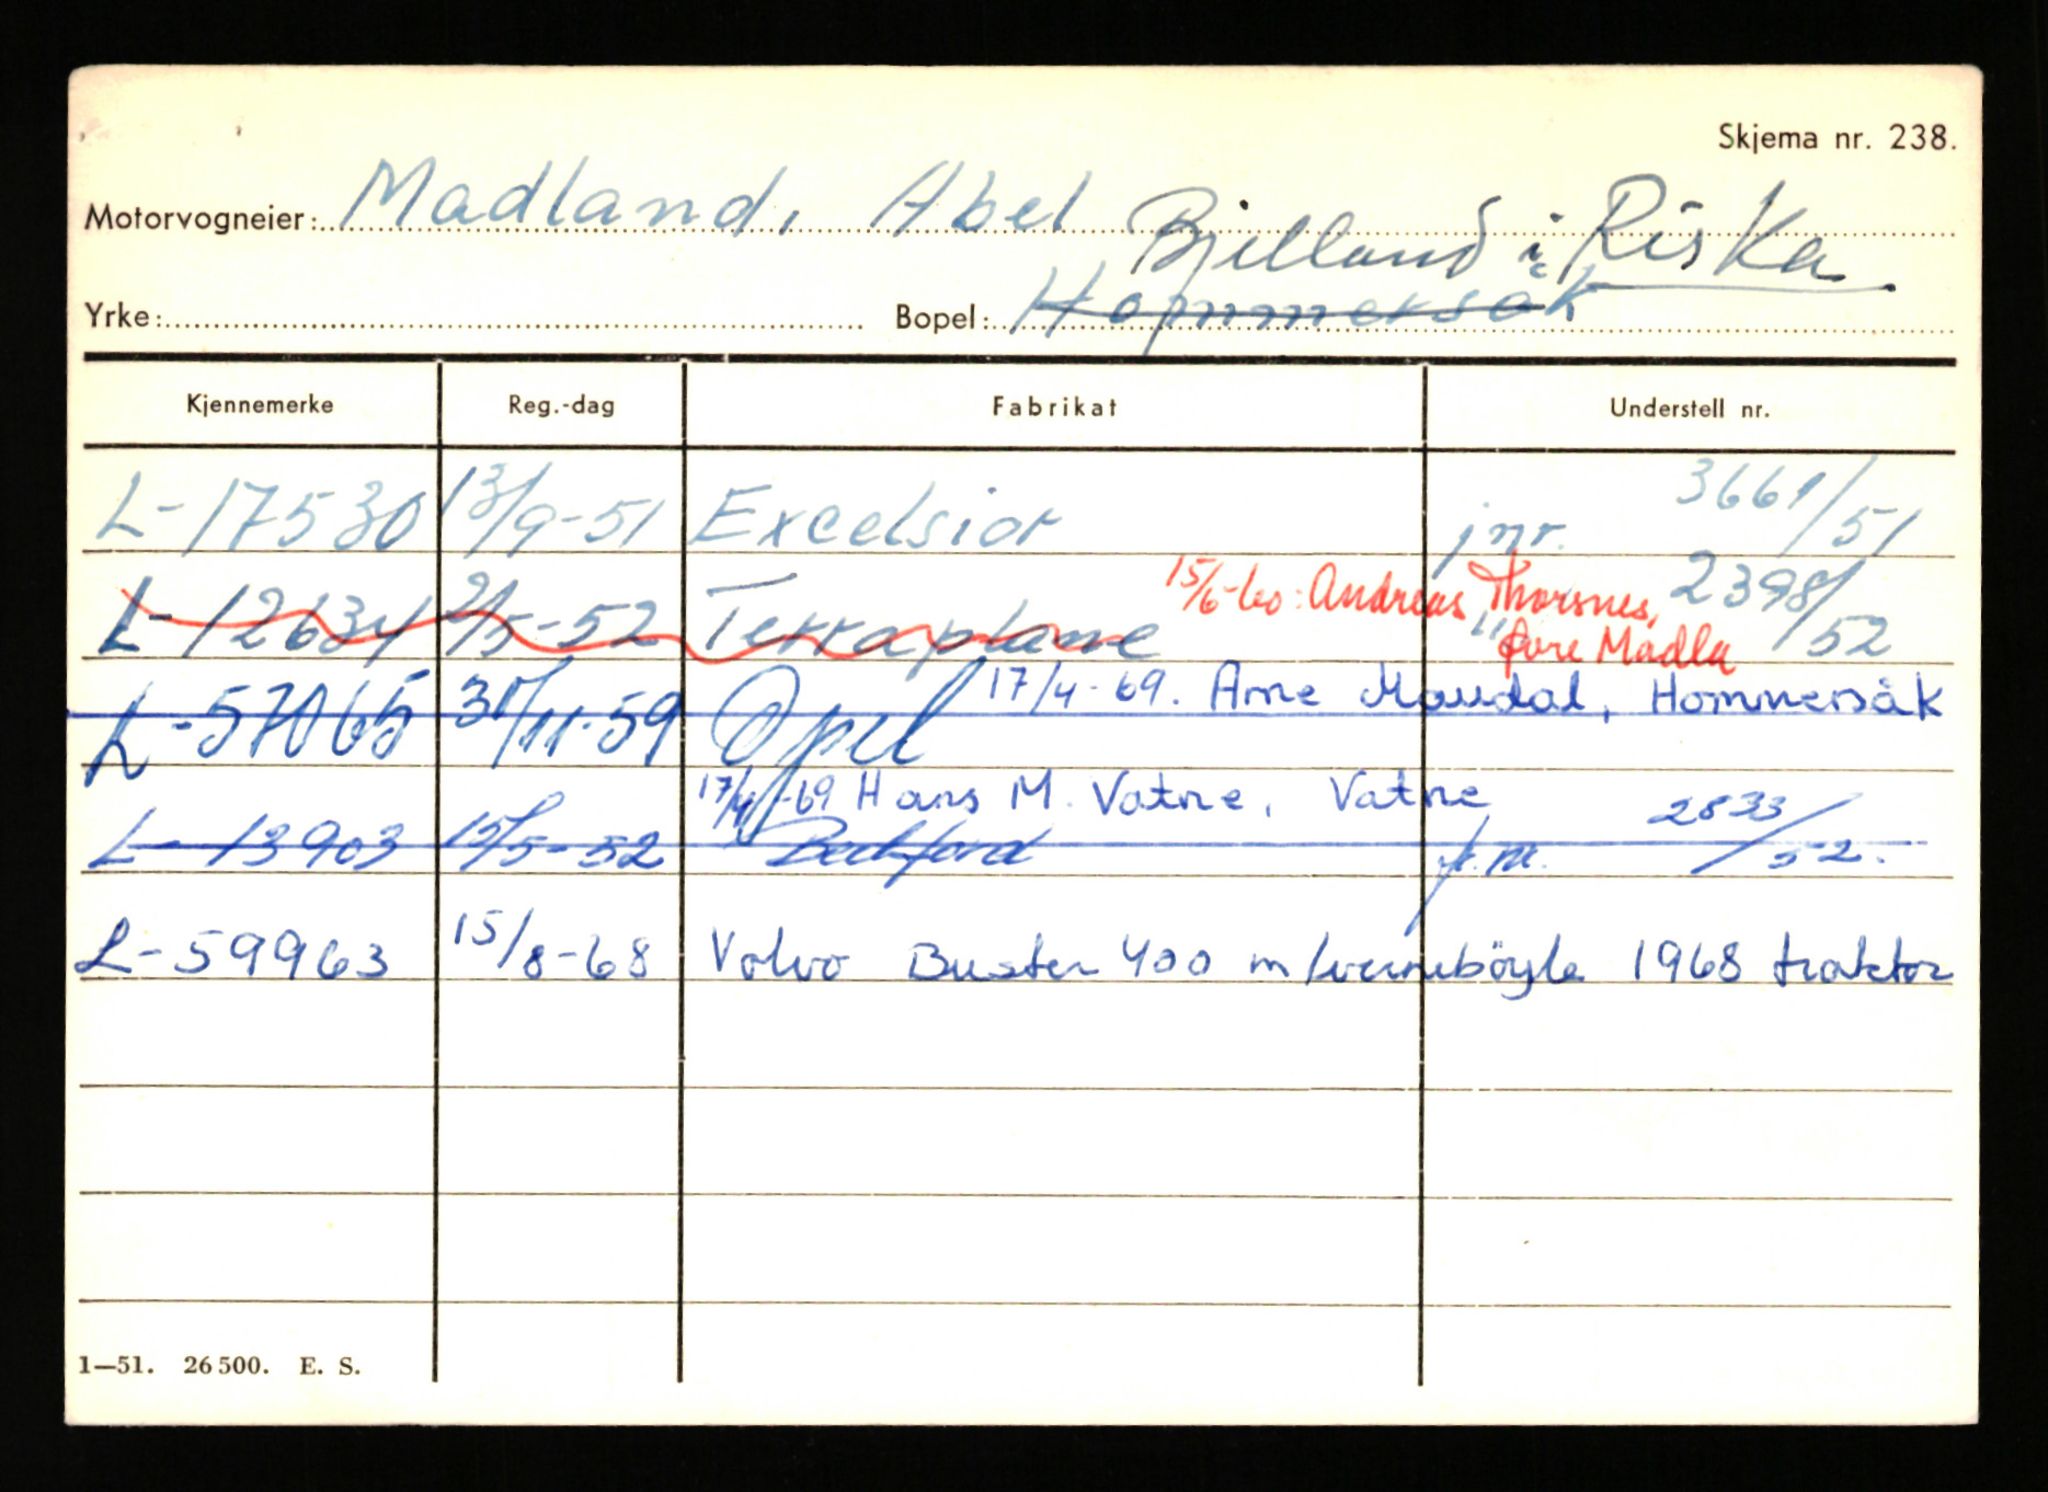 Skjema nr. 238.
Motorvogneier: Madland, Abel
Bjelland i Riska
Yrke: Bopel: Hommersåk
Kjennemerke Reg.-dag Fabrikat Understell nr.
L-17530 13/9-51 Excelsior jnr. 3661/51
L-12634 2/5-52 Terraplane 15/6-60: Andreas Thorsnes, " 2398/52
øvre Madla
L-57065 30/11-59 Opel 17/4-69. Arne Maudal, Hommersåk
17/4-69 Hans M. Vatne, Vatne
L-13903 15/5-52 Bedford 2833/52.
L-59963 15/8-68 Volvo Buster 400 m/verneböyle 1968 traktor
1—51. 26500. E. S.